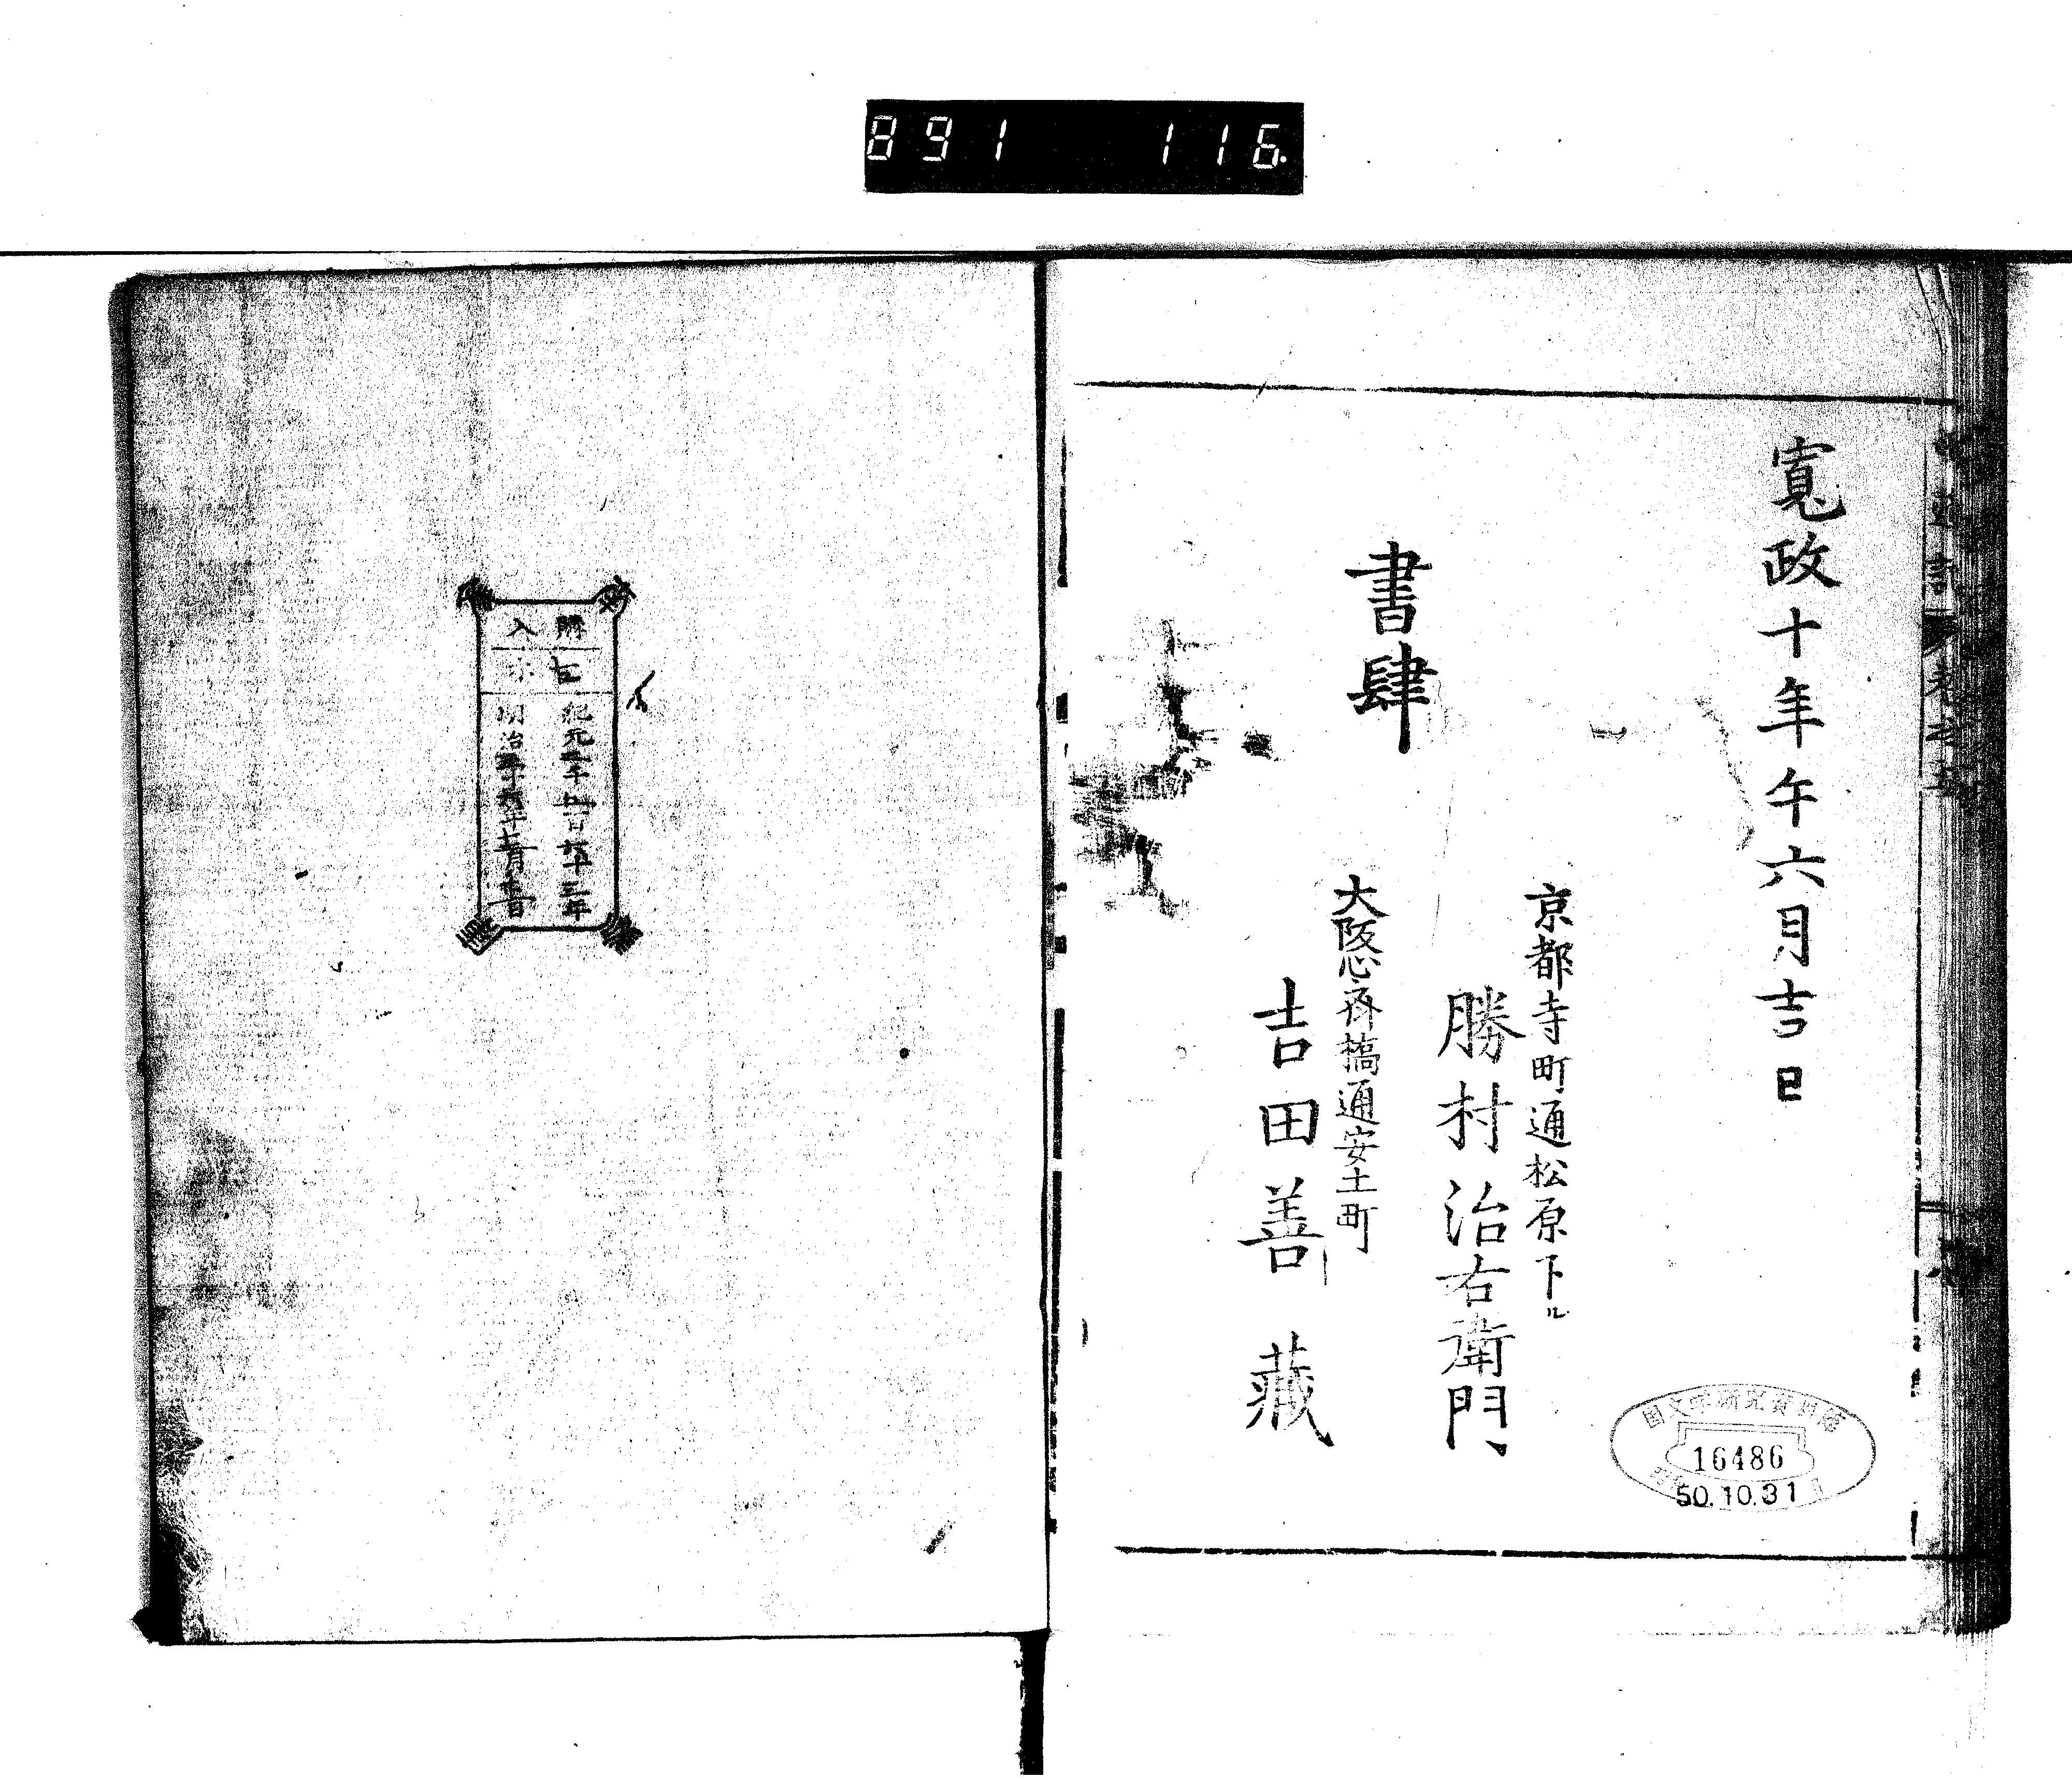 891 116
寛政十年午六月吉日
書肆
京都寺町通松原下ル
勝村治右衛門
大阪心斎橋通安土町
吉田善蔵
国文学研究資料館
16486
50.10.31
購入
紀元二千五百
三年
明治